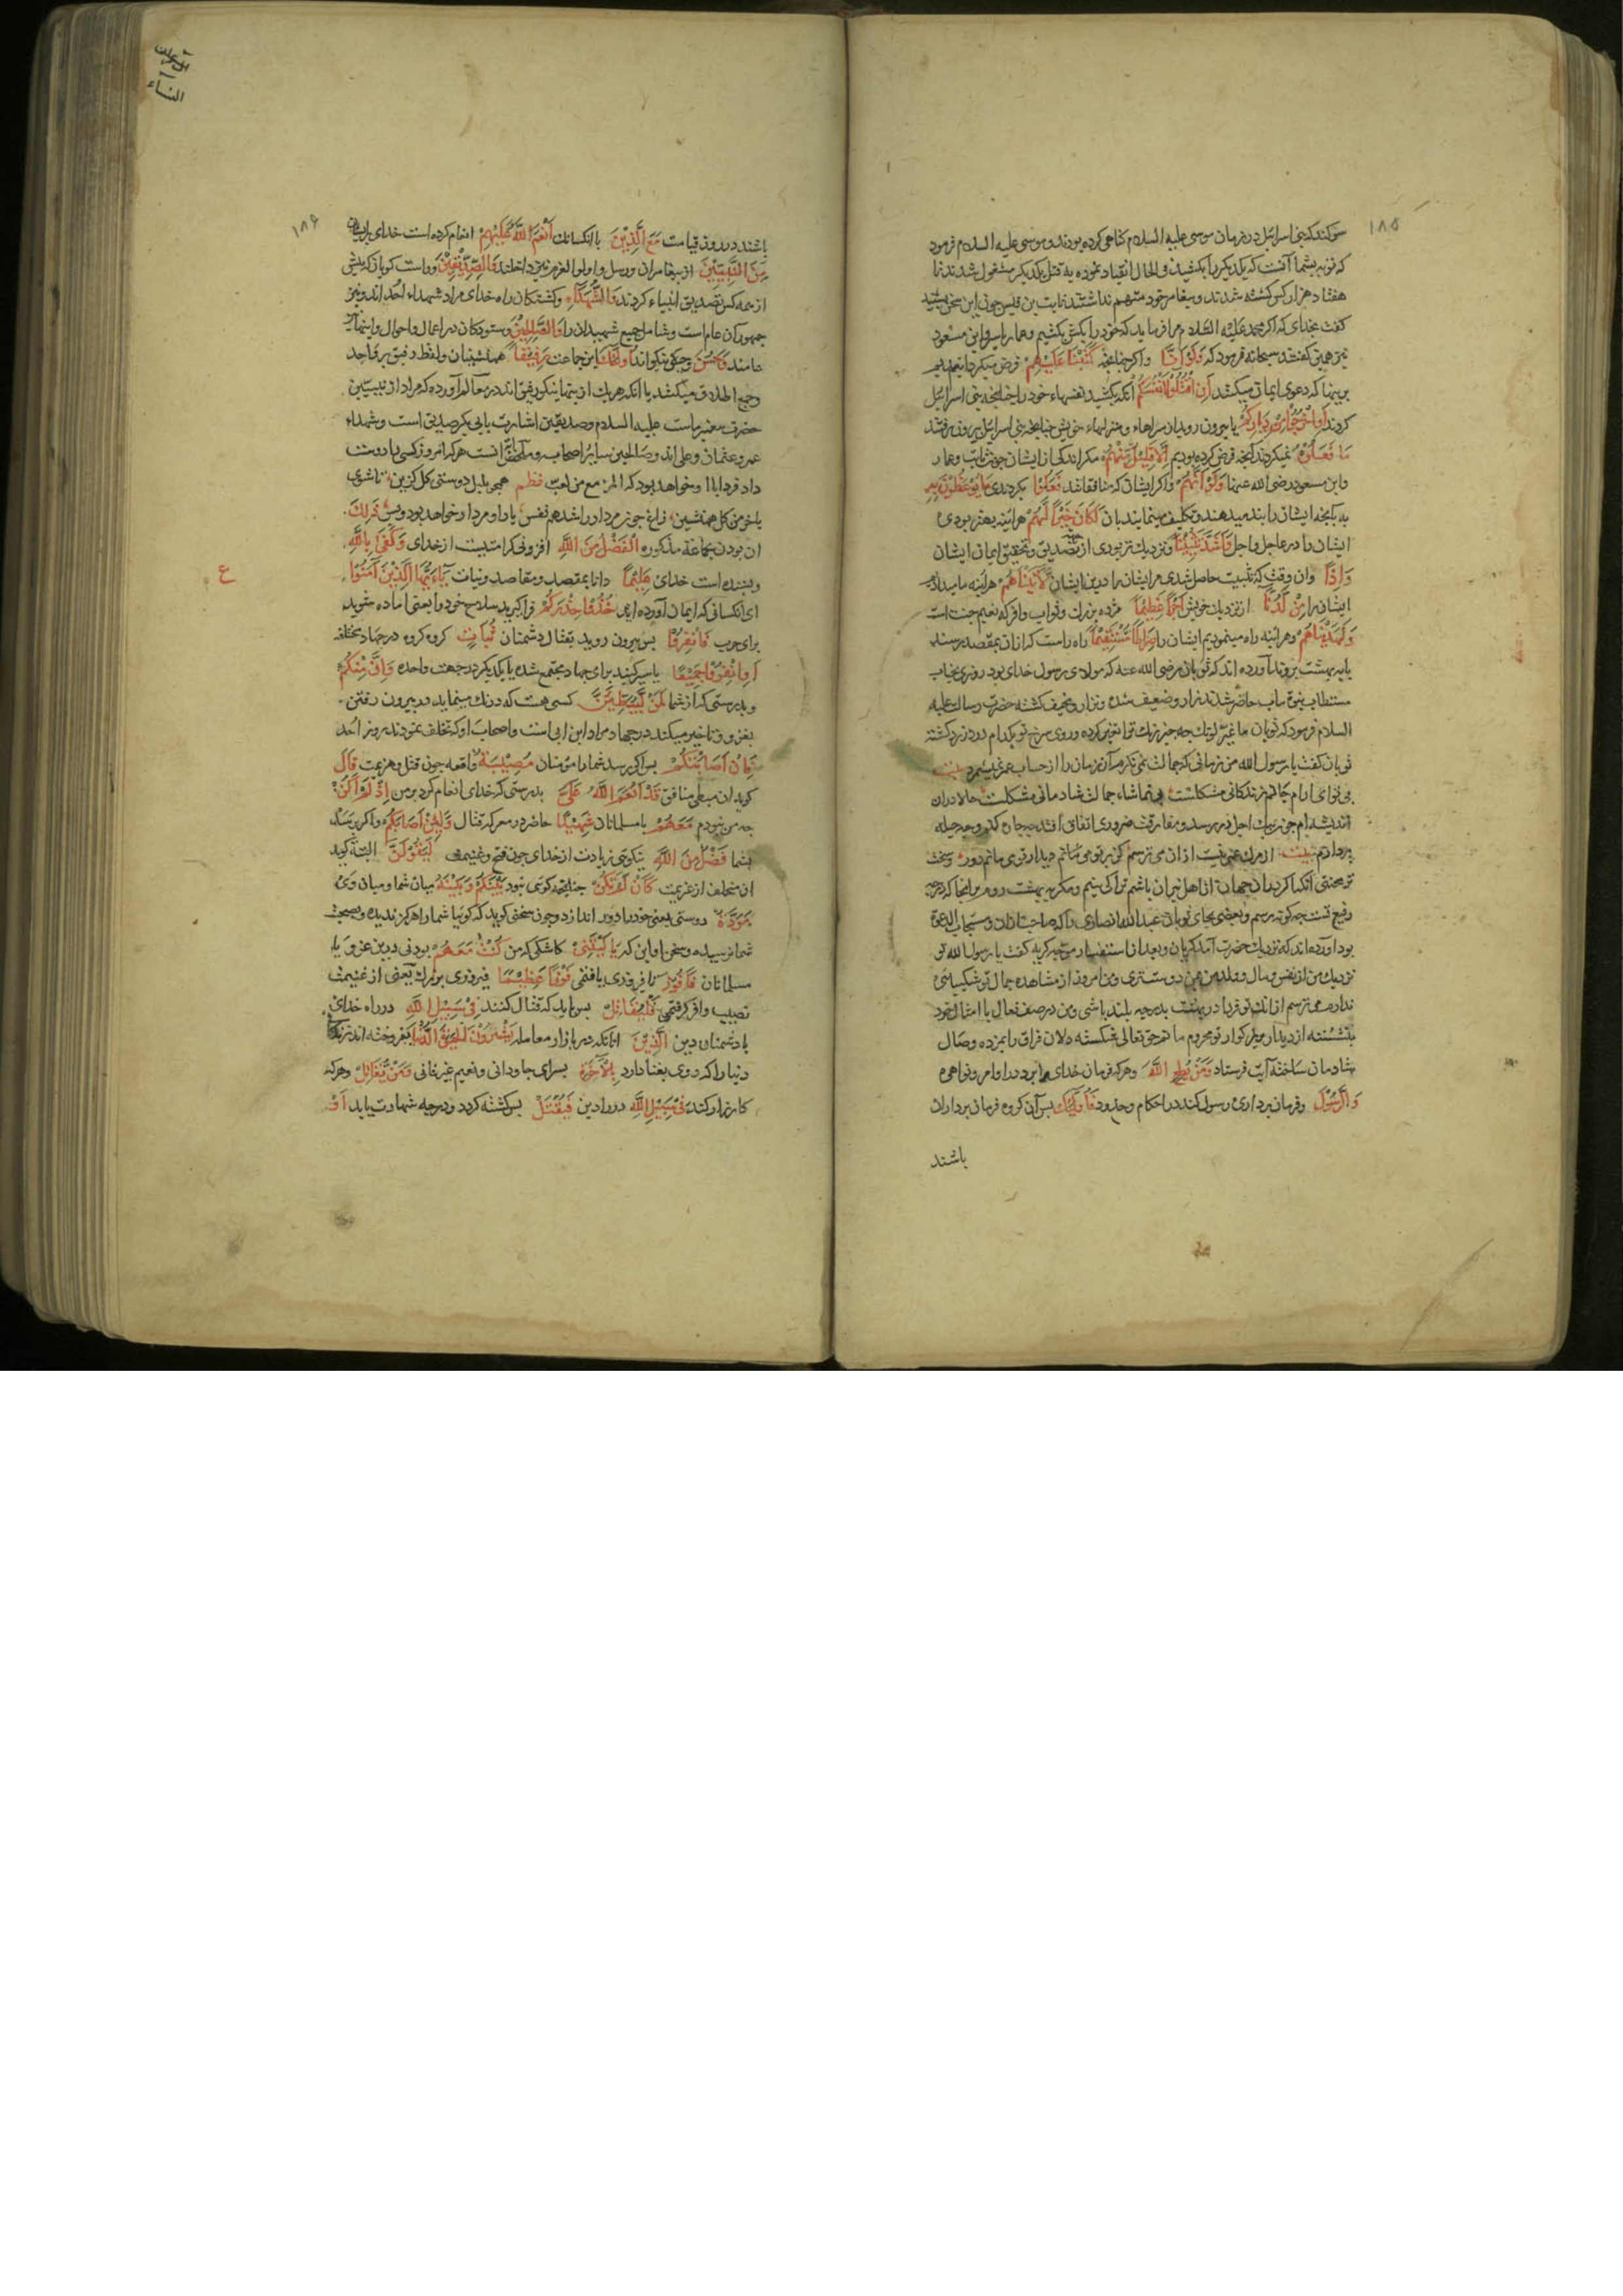 ۱۸۵
سوکند که بنی اسرائیل در فرمان موسی علیه السلام کناهی کرده بودند و موسی علیه السلام فرمود
که توبه شما آنست که یکدیکر را بکشید فی الحال انقیاد نموده به قتل یکدیکر مشغول شدند تا
هفتاد هزار کس کشته شدند و پیغامبر خود متهم نداشتند ثابت بن قیس چون این سخن بشنید
کفت بخدای که اکر محمد علیه السلام مرا فرماید که خود را بکش بکشیم و عمار یاسر و ابن مسعود
نیز همین کفتند سبحانه فرمود که وَلَوْ أَنَّا و اکر چنانچه كَتَبْنَا عَلَيْهِمْ فرض میکردانیدیم
برینها که دعوی ایمان میکنند أَنِ اقْتُلُوا أَنْفُسَكُمْ آنکه بکشید نفسهاء خود را چنانچه بنی اسرائیل
کردند أَوِ اخْرُجُوا مِنْ دِيَارِكُمْ یا بیرون روید از سراهاء و منزلهاء خویش چنانچه بنی اسرائیل بیرون رفتند
مَا فَعَلُوهُ نمیکردند آنچه فرض کرده بودیم إِلَّا قَلِيلٌ مِنْهُمْ مکر اندکی از ایشان چون ثابت و عمار
و ابن مسعود رضی الله عنهما وَلَوْ أَنَّهُمْ و اکر ایشان که منافقانند فَعَلُوا بکردندی مَا يُوعَظُونَ بِهِ
به آنچه ایشان را پند میدهند و تکلیف مینمایند بان لَكَانَ خَيْرًا لَهُمْ هرآینه بهتر بودی
ایشان را در عاجل و آجل وَأَشَدَّ تَثْبِيتًا و نزدیک تر بودی از تصدیق و تحقیق ایمان ایشان
وَإِذًا و ان وقت که تثبیت حاصل شدی مر ایشان را در دین ایشان لَآتَيْنَاهُمْ هرآینه ما میدادیم
ایشان را مِنْ لَدُنَّا از نزدیک خویش أَجْرًا عَظِيمًا مزده بزرک و ثواب وافر که نعیم جنت است
وَلَهَدَيْنَاهُمْ و هرآینه راه مینمودیم ایشان را صِرَاطًا مُسْتَقِيمًا راه راست که از ان بمقصد رسند
یا به بهشت بروند آورده اند که ثوبان رضی الله عنه که مولای رسول خدای بود روزی بجناب
مستطاب نبوة مآب حاضر شد نزار و ضعیف شده و نزار و نحیف کشته حضرت رسالت علیه
السلام فرمود که ثوبان ما غیر لونک چه چیز رنک ترا تغییر کرده و روی سرخ تو بکدام درد زرد کشته
ثوبان کفت یا رسول الله من زمانی که جمالت نمی نکرم آن زمان را از حساب عمر نمیشمرم بیت
بی توای ارام جانم زندکانی مشکلست بی تماشاء جمالت شادمانی مشکلست حالا دران
اندیشه ام چون پیک اجل فرا رسد و مفارقت ضروری اتفاق افتد چه چاره کنم و چه حیله
پردازم بیت از مرک غمی نیست ازان می ترسم کز پرتو دیدار تو می مانم دور و سخت
تر محنتی آنکه اکر در ان جهان از اهل نیران باشم ترا کی بینم و مکر به بهشت روم بر انجا که درجه
رفیع تست چه کونه رسم و بعضی بجای ثوبان عبدالله انصاری را که صاحب اذان و مستجاب الدعوة
بود آورده اند که نزدیک حضرت آمد کریان و بعد از استفسار موجب کریه کفت یا رسول الله تو
نزدیک من از نفس و مال و ولد من بمن دوستتری و من امروز از مشاهده جمال تو شکیبائی
ندارم می ترسم از انک تو فردا در بهشت بدرجه بلند باشی و من در صف نعال با امثال خود
بنشسته از دیدار بزرکوار تو محروم مانم حق تعالی شکسته دلان فراق را بمژده وصال
شادمان ساخته آیت فرستاد وَمَنْ يُطِعِ اللَّهَ و هر که فرمان خدای را برد در اوامر و نواهی
وَالرَّسُولَ و فرمان برداری رسول کند در احکام و حدود فَأُولَئِكَ پس آن کروه فرمان برداران
باشند
آل عمران
النساء
۱۸۶
باشند در روز قیامت مَعَ الَّذِينَ با آنکسانک أَنْعَمَ اللَّهُ عَلَيْهِمْ انعام کرده است خدای بر ایشان
مِنَ النَّبِيِّينَ از پیغامبران و رسل و اولو العزم نیز داخلند وَالصِّدِّيقِينَ و راست کویان که پیش
از همه کس تصدیق انبیاء کردند وَالشُّهَدَاءِ و کشتکان راه خدای مراد شهداء احد اند و نیز
جمهور آن عام است و شامل جمیع شهیدان را وَالصَّالِحِينَ و ستودکان در اعمال و احوال و اینها نیز
عامند وَحَسُنَ و چکه نیکو اند أُولَئِكَ این جماعت رَفِيقًا همنشینان و لفظ رفیق بر واحد
و جمع اطلاق میکنند یا آنکه هر یک از ینها نیکو رفیق اند در معالم آورده که مراد از نبیین
حضرت پیغمبر ماست علیه السلام و صدیقین اشارت بابی بکر صدیق است و شهداء
عمر و عثمان و علی اند و صالحین سایر اصحاب و مآل انست هر که امروز کسی را دوست
دارد فردا با او خواهد بود که المرء مع من احب قطم همچو بلبل دوستی کل کزین تا شوی
یا خرمن کل همنشین زاغ چون مردار را شد هم نفس یار او مردار خواهد بود و بس ذَلِكَ
ان بودن بجماعة مذکوره الْفَضْلُ مِنَ اللَّهِ افزونی کرامتیست از خدای وَكَفَى بِاللَّهِ
و بسنده است خدای عَلِيمًا دانا بمقصد و مقاصد و نیات يَا أَيُّهَا الَّذِينَ آمَنُوا
ای آنکسانی که ایمان آورده اید خُذُوا حِذْرَكُمْ فرا کیرید سلاح خود را یعنی آماده شوید
برای حرب فَانْفِرُوا پس بیرون روید بقتال دشمنان ثُبَاتٍ کروه کروه در جهاد مختلفه
أَوِ انْفِرُوا جَمِيعًا یا سیر کنید برای جهاد مجتمع شده با یکدیکر در جهت واحده وَإِنَّ مِنْكُمْ
و بدرستی که از شما لَمَنْ لَيُبَطِّئَنَّ کسی هست که درنک مینماید در بیرون رفتن
بغزو و تاخیر میکند در جهاد مراد ابن ابی است و اصحاب او که تخلف نمودند بروز احد
فَإِنْ أَصَابَتْكُمْ پس اکر برسد شما را مؤمنان مُصِيبَةٌ واقعه چون قتل و هزیمت قَالَ
کوید ان مبطی منافق قَدْ أَنْعَمَ اللَّهُ عَلَيَّ بدرستی که خدای انعام کرد بر من إِذْ لَمْ أَكُنْ
چه من نبودم مَعَهُمْ با مسلمانان شَهِيدًا حاضر در معرکه قتال وَلَئِنْ أَصَابَكُمْ و اکر برسد
بشما فَضْلٌ مِنَ اللَّهِ نیکویی زیادت از خدای چون فتح و غنیمت لَيَقُولَنَّ البته کوید
ان متخلف از غزیمت كَأَنْ لَمْ تَكُنْ چنانچه کوئی نبود بَيْنَكُمْ وَبَيْنَهُ میان شما و میان وی
مَوَدَّةٌ دوستی یعنی خود را دور اندازد و چون سخنی کوید که کوییا شما را هرکز ندیده و بصحبت
شما نرسیده و سخن او این که يَا لَيْتَنِي کاشکی که من كُنْتُ مَعَهُمْ بودمی درین غزو با
مسلمانان فَأَفُوزَ تا فیروزی یافتمی فَوْزًا عَظِيمًا فیروزی بزرک یعنی از غنیمت
نصیب وافر کرفتمی فَلْيُقَاتِلْ پس باید که قتال کنند فِي سَبِيلِ اللَّهِ در راه خدای
با دشمنان دین الَّذِينَ آنانکه در بازار معامله يَشْرُونَ الْحَيَاةَ الدُّنْيَا بفروخته اند زندکانی
دنیا را که روی بفنا دارد بِالْآخِرَةِ بسرای جاودانی و نعیم غیر فانی وَمَنْ يُقَاتِلْ و هر که
کارزار کند فِي سَبِيلِ اللَّهِ در راه دین فَيُقْتَلْ پس کشته کردد و درجه شهادت یابد أَوْ
ع